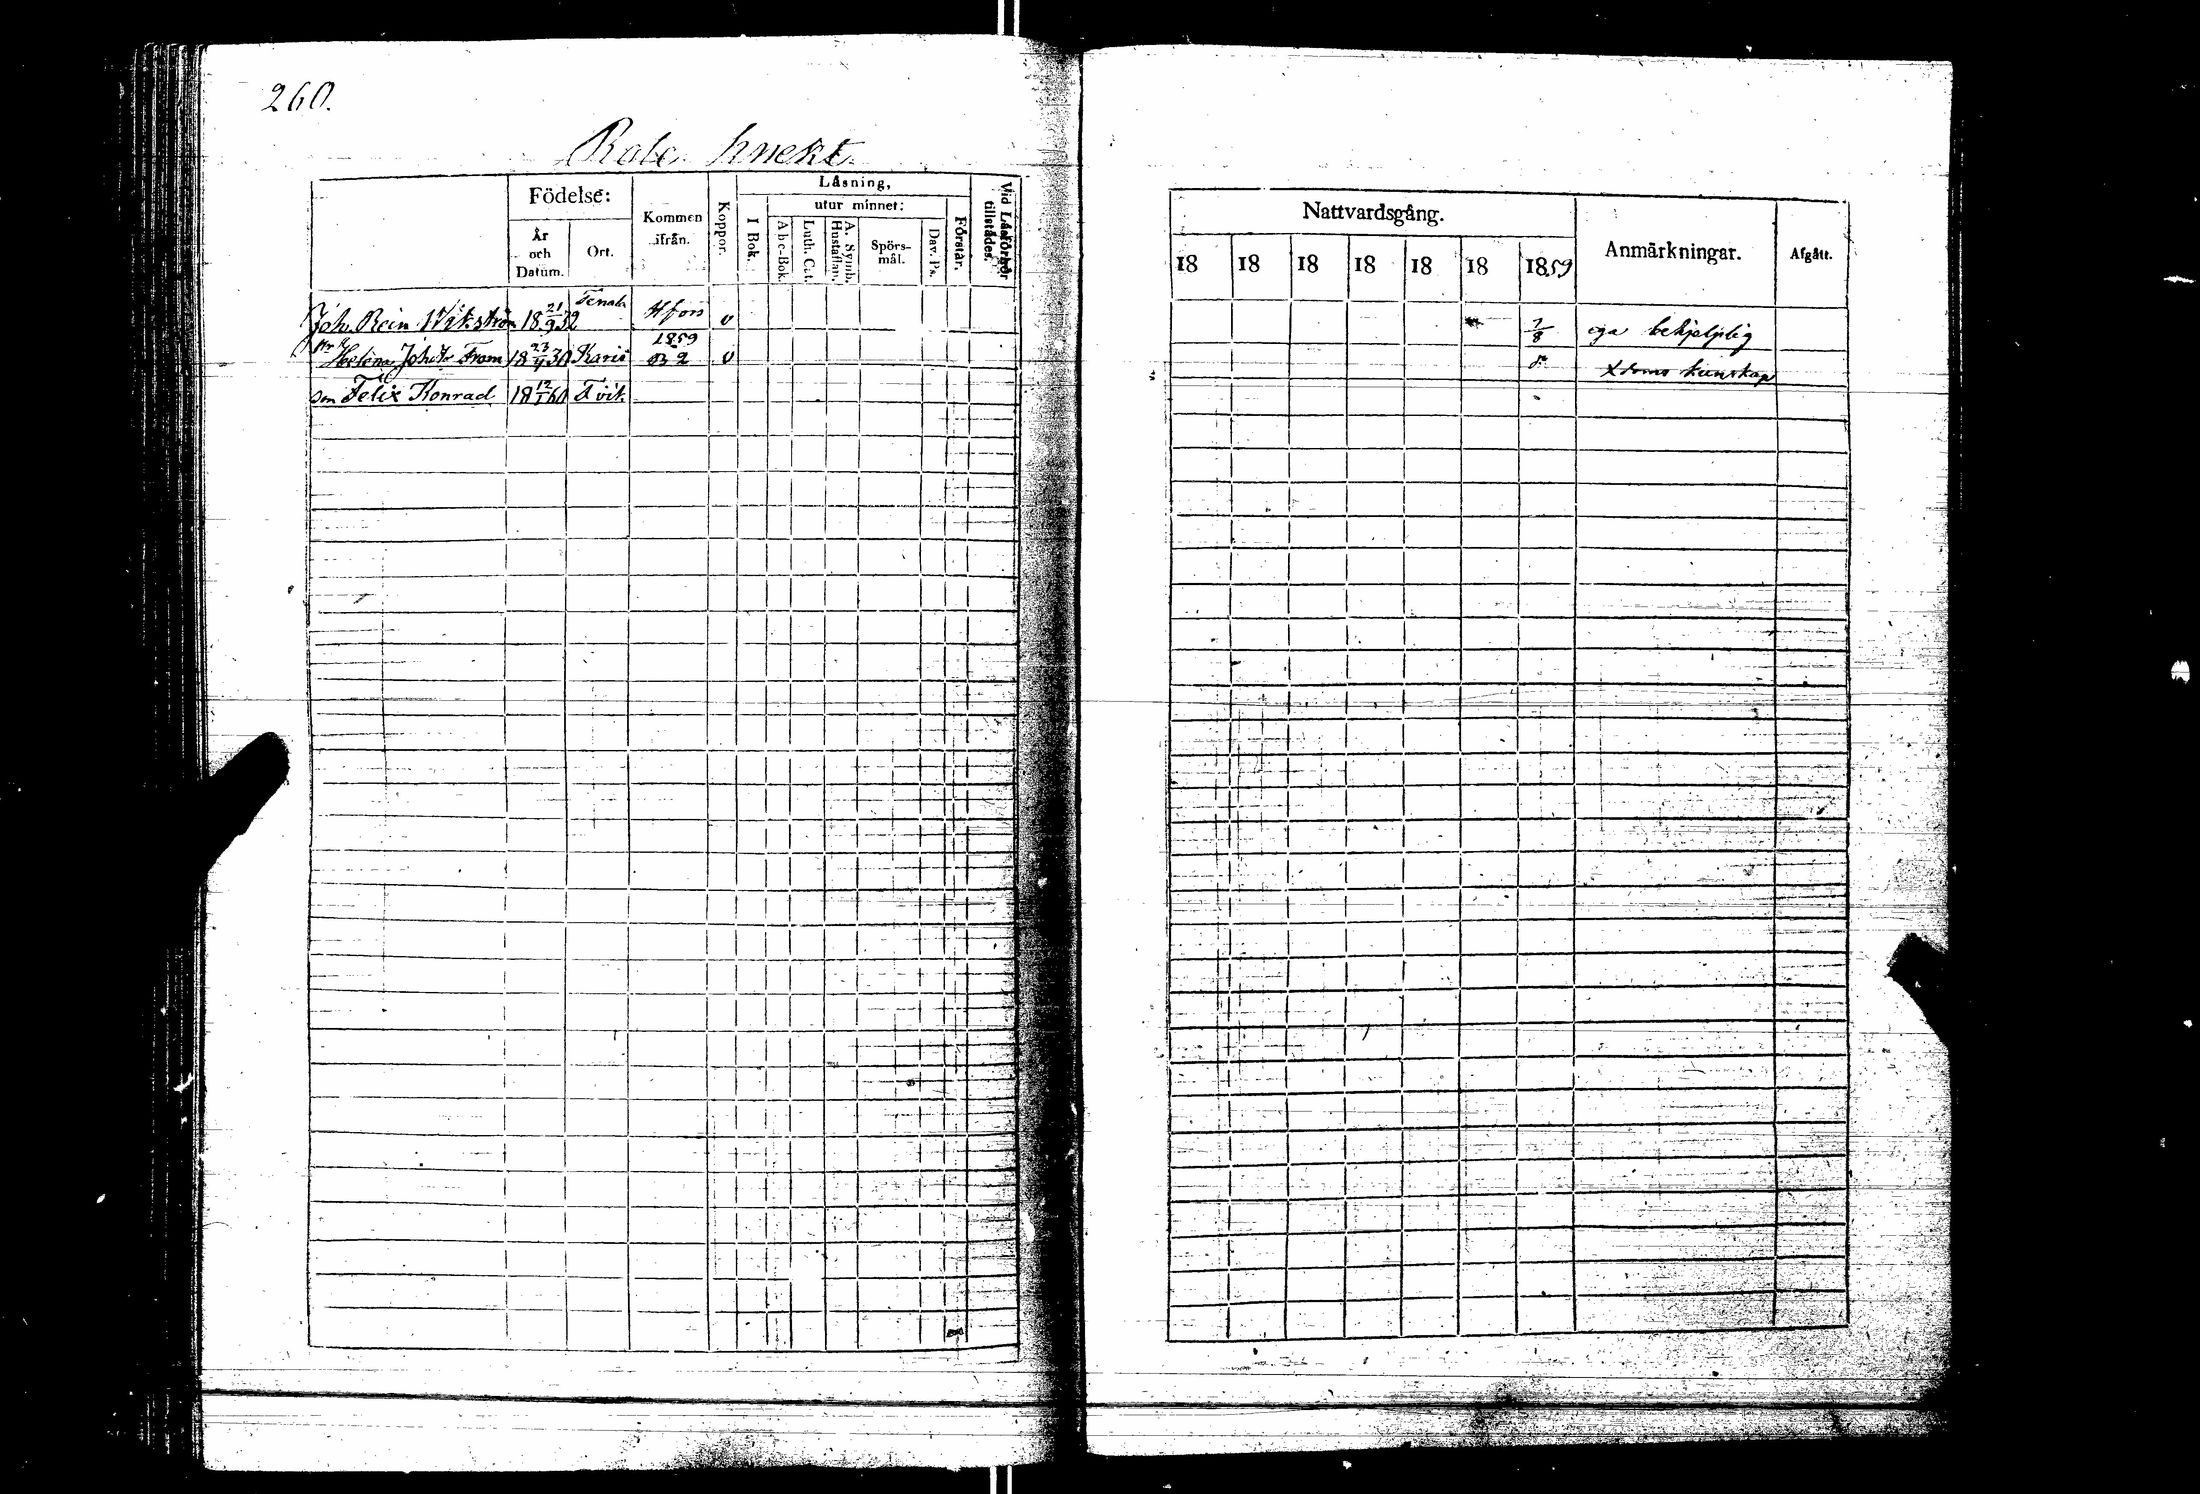 260.
Rote knekt
Födelse:
Kommen ifrån.
Koppor.
Läsning,
utur minnet:
Vid Läsförhör tillstädes.
År och Datum.
Ort.
I Bok.
Abc-Bok.
Luth. Cat.
A. Symb. Hustaflan.
Spörsmål.
Dav. Ps.
Förstår.
Joh. Rein Wikström 18 21/9 32 Tenala Hfors v
Helena Joh:dr Fram 18 23/4 30 Karis 1859 v
son Felix Konrad 18 12/1 60
Nattvardsgång.
Anmärkningar.
Afgått.
18 18 18 18 18 18 1859
7/8 ega behjelplig
Xdoms kunskap